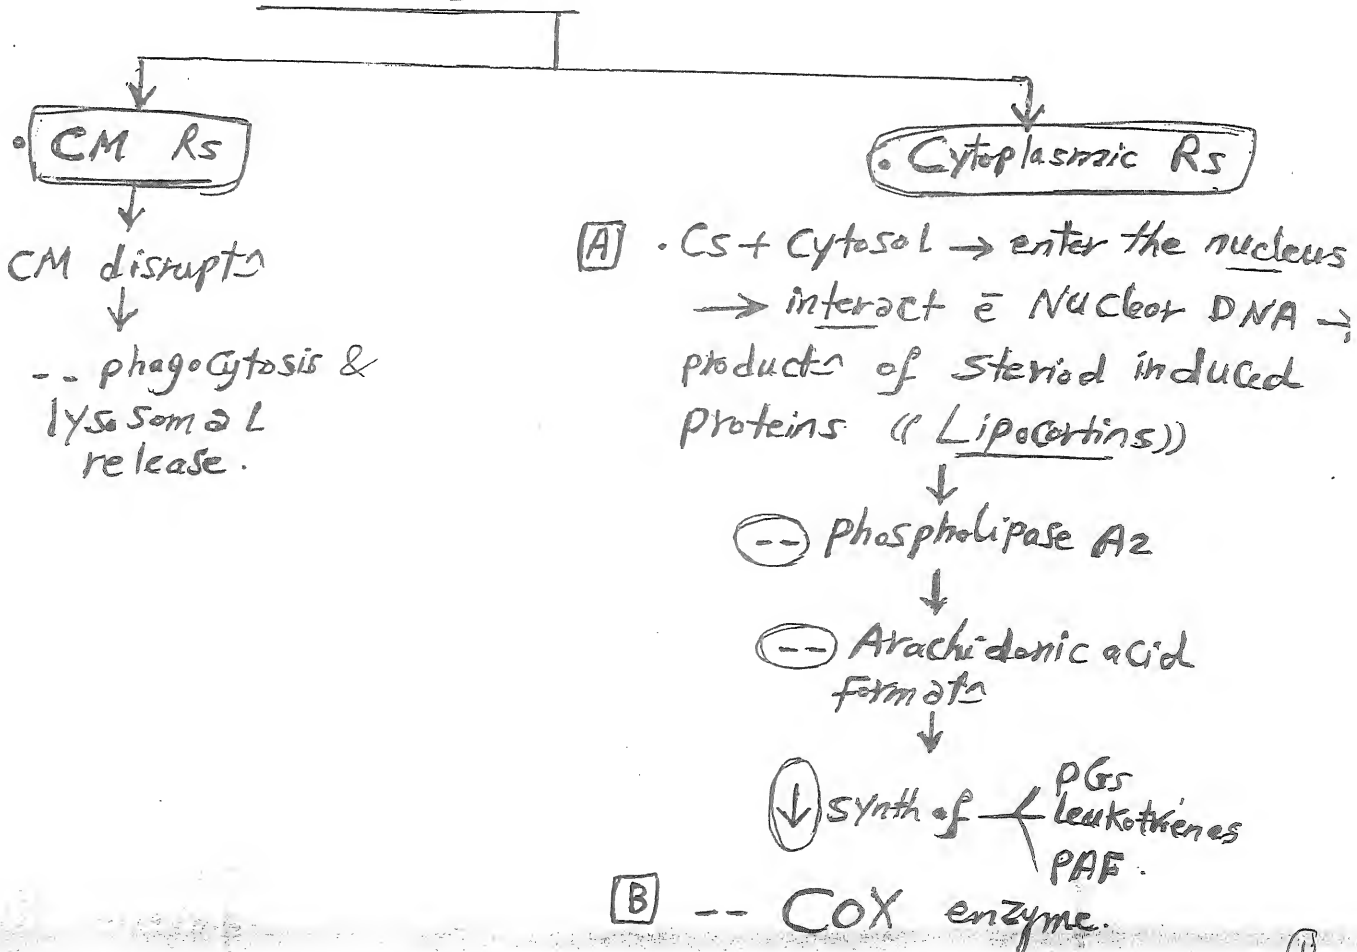 . CM Rs
CM disruptn
-- phagocytosis &
lysosomal
release.
. Cytoplasmic Rs
A . Cs + Cytosol → enter the nucleus
→ interact ē Nuclear DNA →
productn of Steriod induced
proteins (( Lipocortins ))
-- phospholipase A2
-- Arachidonic acid
formatn
↓ synth of
PGs
leukotrienes
PAF.
B -- COX enzyme.